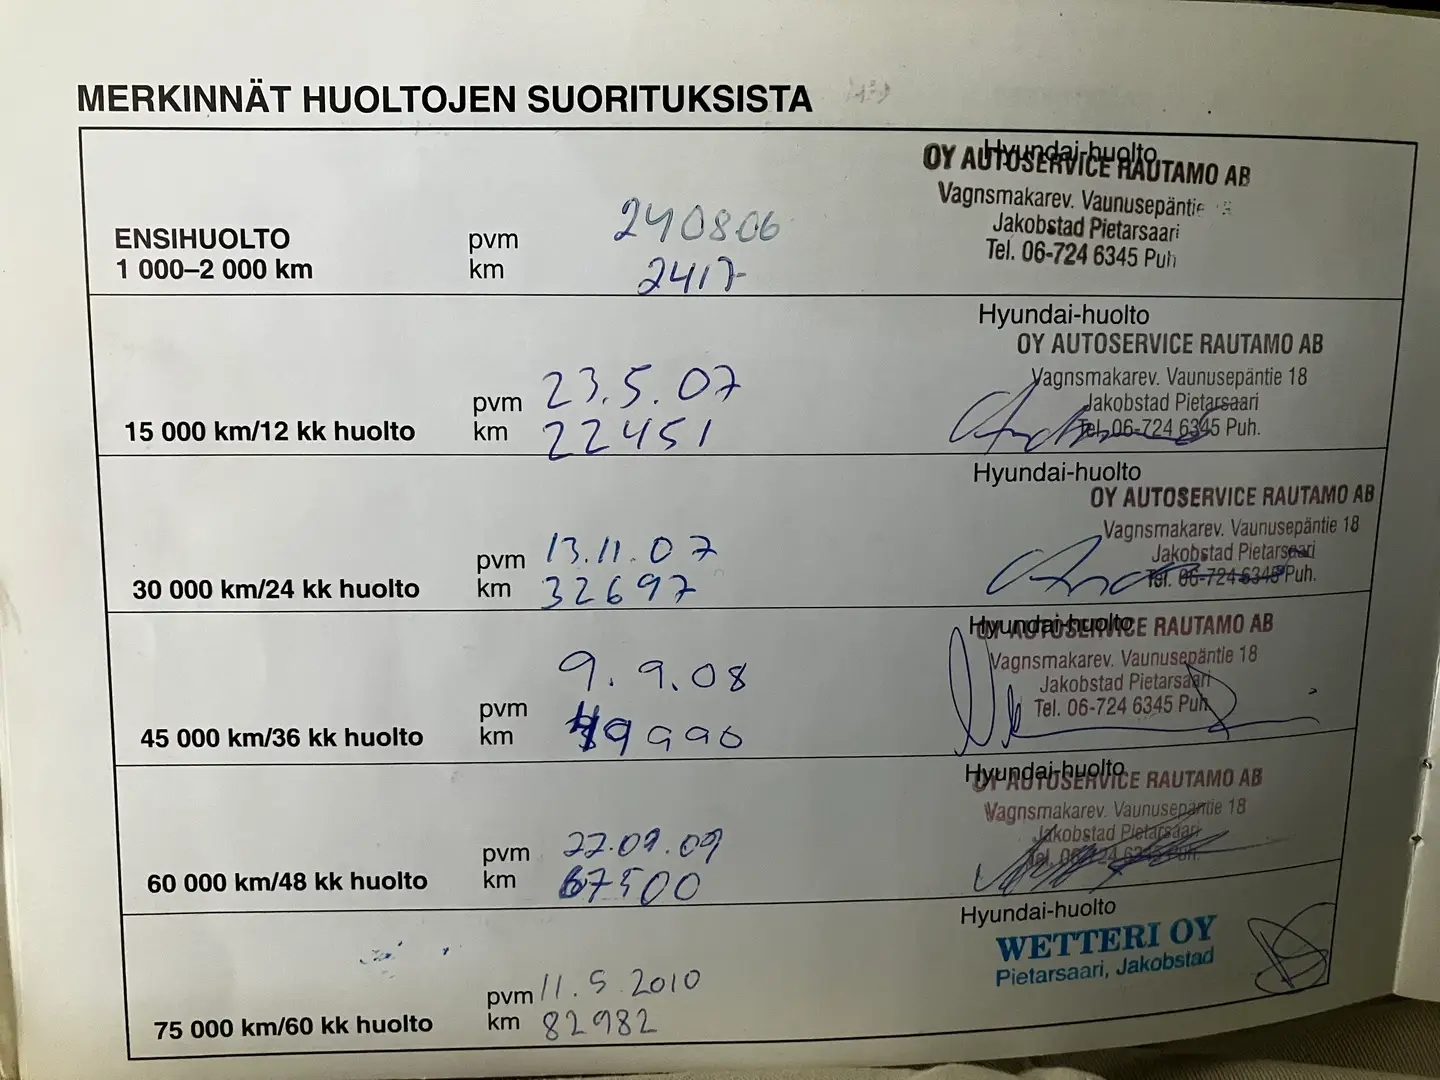 MERKINNÄT HUOLTOJEN SUORITUKSISTA
Hyundai-huolto
OY AUTOSERVICE RAUTAMO AB
Vagnsmakarev. Vaunusepäntie
Jakobstad Pietarsaari
Tel. 06-724 6345 Puh
ENSIHUOLTO
1 000–2 000 km
pvm 240806
km 2417
Hyundai-huolto
OY AUTOSERVICE RAUTAMO AB
Vagnsmakarev. Vaunusepäntie 18
Jakobstad Pietarsaari
Tel. 06-724 6345 Puh.
15 000 km/12 kk huolto
pvm 23.5.07
km 22451
Hyundai-huolto
OY AUTOSERVICE RAUTAMO AB
Vagnsmakarev. Vaunusepäntie 18
Jakobstad Pietarsaari
Tel. 06-724 6345 Puh.
30 000 km/24 kk huolto
pvm 13.11.07
km 32697
Hyundai-huolto
OY AUTOSERVICE RAUTAMO AB
Vagnsmakarev. Vaunusepäntie 18
Jakobstad Pietarsaari
Tel. 06-724 6345 Puh
45 000 km/36 kk huolto
pvm 9.9.08
km 49990
Hyundai-huolto
OY AUTOSERVICE RAUTAMO AB
Vagnsmakarev. Vaunusepäntie 18
Jakobstad Pietarsaari
Tel. 06-724 6345 Puh.
60 000 km/48 kk huolto
pvm
km 67500
Hyundai-huolto
WETTERI OY
Pietarsaari, Jakobstad
75 000 km/60 kk huolto
pvm 11.5.2010
km 82982